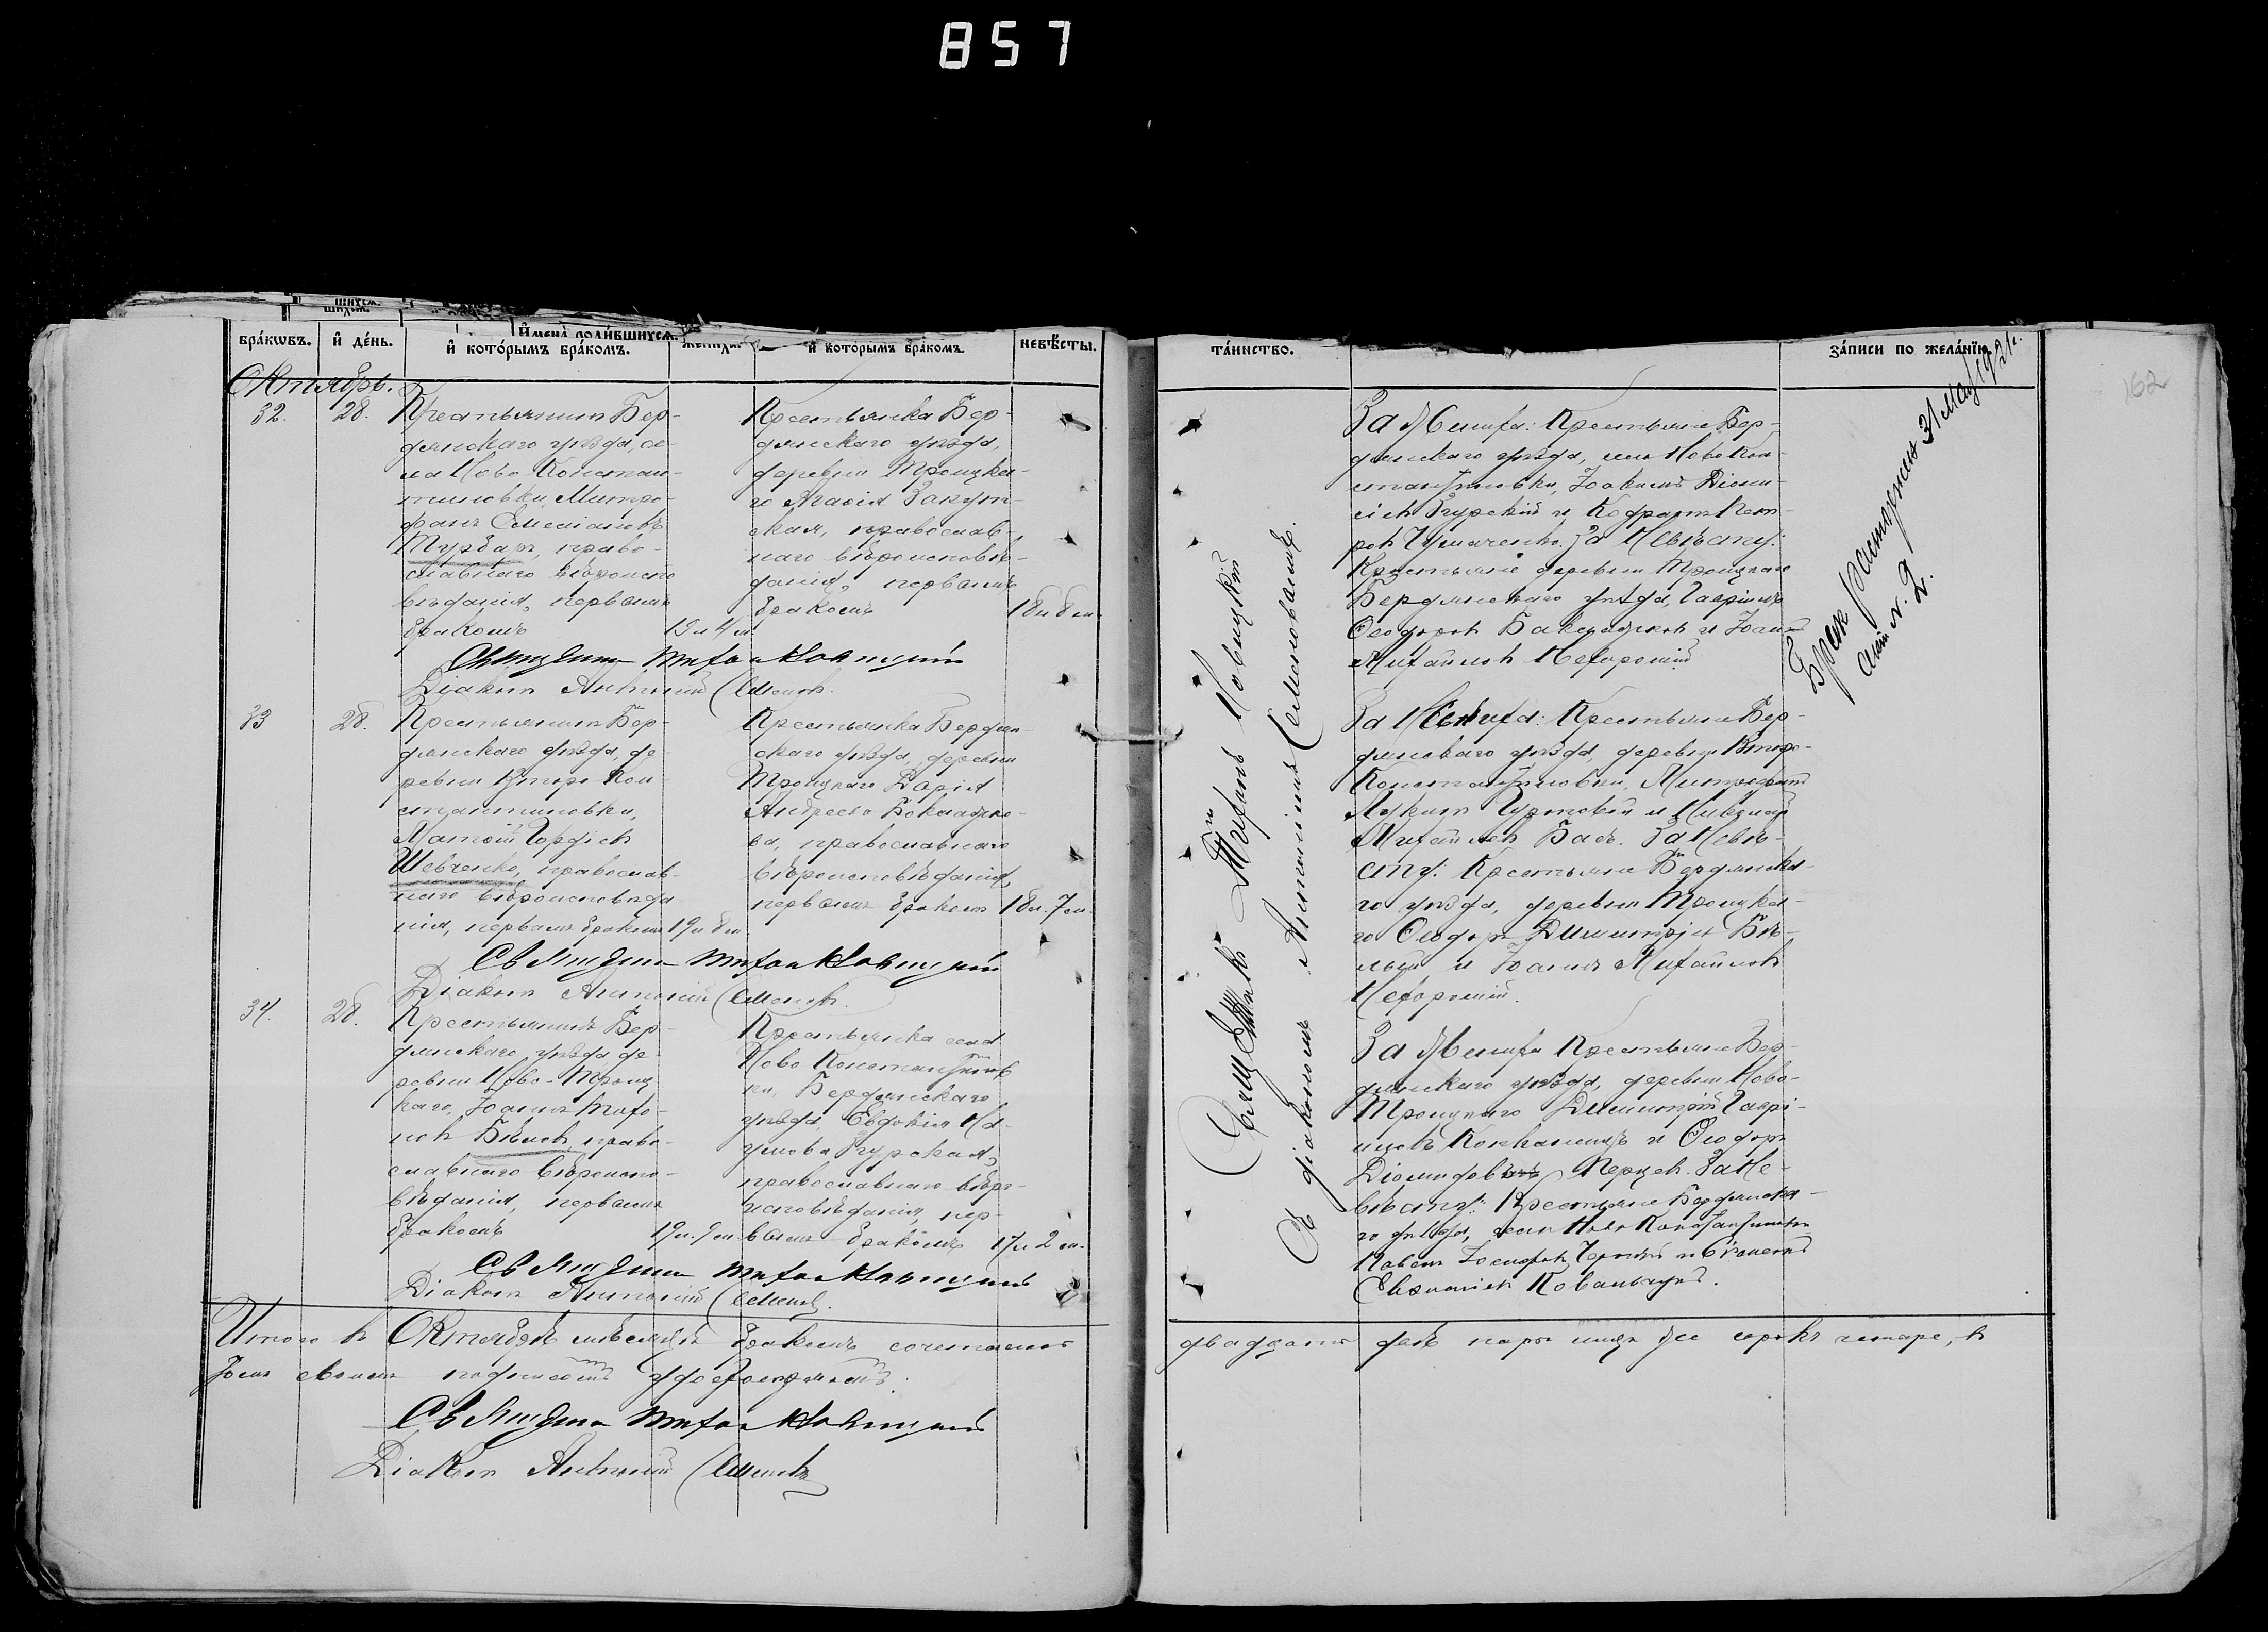 857
шихся.
шихъ.
Имена родившихся.
браковъ.
и день.
и которымъ бракомъ.
жениха.
и которымъ бракомъ.
невѣсты.
Октябрь.
32.
28.
Крестьянинъ Бер-
дянскаго уѣзда, се-
ла Ново Констан-
тиновки, Митро-
фанъ Емеліановъ
Турбаръ, право-
славнаго вѣроиспо
вѣданія, первымъ
бракомъ
Крестьянка Бер-
дянскаго уѣзда,
деревни Троицка-
го
православ-
наго вѣроисповѣ-
данія, первымъ
бракомъ
18 л 8 м.
Священникъ Тихонъ Новицкій
Діаконъ Антоній Семеновъ.
33
28.
Крестьянинъ Бер-
дянскаго уѣзда, де-
ревни Второ Кон-
стантиновки,
Матѳій Гордіевъ
Шевченко, православ-
наго вѣроисповѣда
нія, первымъ бракомъ
19 л 8 м
Крестьянка Бердян-
скаго уѣзда, деревни
Троицкаго Дарія
Андреева
ва, православнаго
вѣроисповѣданія,
первымъ бракомъ
18 л. 7 м.
Священникъ Тихонъ Новицкій
Діаконъ Антоній Семеновъ.
34.
28.
Крестьянинъ Бер-
дянскаго уѣзда де-
ревни Ново-Троиц
каго, Іоаннъ Тихо-
новъ Бѣлой, право-
славнаго вѣроиспо-
вѣданія, первымъ
бракомъ
19 л. 9 м.
Крестьянка села
Ново Константинов
ки, Бердянскаго
уѣзда, Евдокія На-
умова Згурская,
православнаго вѣро-
исповѣданія, пер-
вымъ бракомъ
17 л 2 м.
Священникъ Тихонъ Новицкій
Діаконъ Антоній Семеновъ.
Итого въ Октябрѣ мѣсяцѣ бракомъ сочетаны
своимъ подписомъ удостовѣряемъ.
Священникъ Тихонъ Новицкій
Діаконъ Антоній Семеновъ
таинство.
записи по желанію
162
Священникъ Тихонъ Новицкій
съ діакономъ Антоніемъ Семеновымъ.
За Жениха: Крестьяне Бер-
дянскаго уѣзда, села Ново Кон-
стантиновки, Іоакимъ Діони-
сіевъ Згурскій и Кодратъ Пет-
ровъ Чумаченко. За Невѣсту:
Крестьяне деревни Троицкаго
Бердянскаго уѣзда, Гавріилъ
Ѳеодоровъ и Іоаннъ
Михайловъ Нехорошій
За Жениха: Крестьяне Бер-
дянскаго уѣзда, деревни Второ-
Константиновки, Митрофанъ
Лукинъ Гуртовый и Никаноръ
Михайловъ Бабъ. За Невѣ-
сту: Крестьяне Бердянска-
го уѣзда, деревни Троицка-
го Ѳеодоръ Димитріевъ Бѣ-
лый и Іоаннъ Михайловъ
Нехорошій.
За Жениха Крестьяне Бер-
дянскаго уѣзда, деревни Ново-
Троицкаго Димитрій Гаврі-
иловъ и Ѳеодоръ
Діомидовъ Перцевъ. За Не-
вѣсту: Крестьяне Бердянска-
го уѣзда, села Ново Константиновки
Павелъ Іосифовъ
Ковальчукъ.
двадцать двѣ пары лицъ
Бракъ расторженъ 31 мая 1921 г.
№ 2.